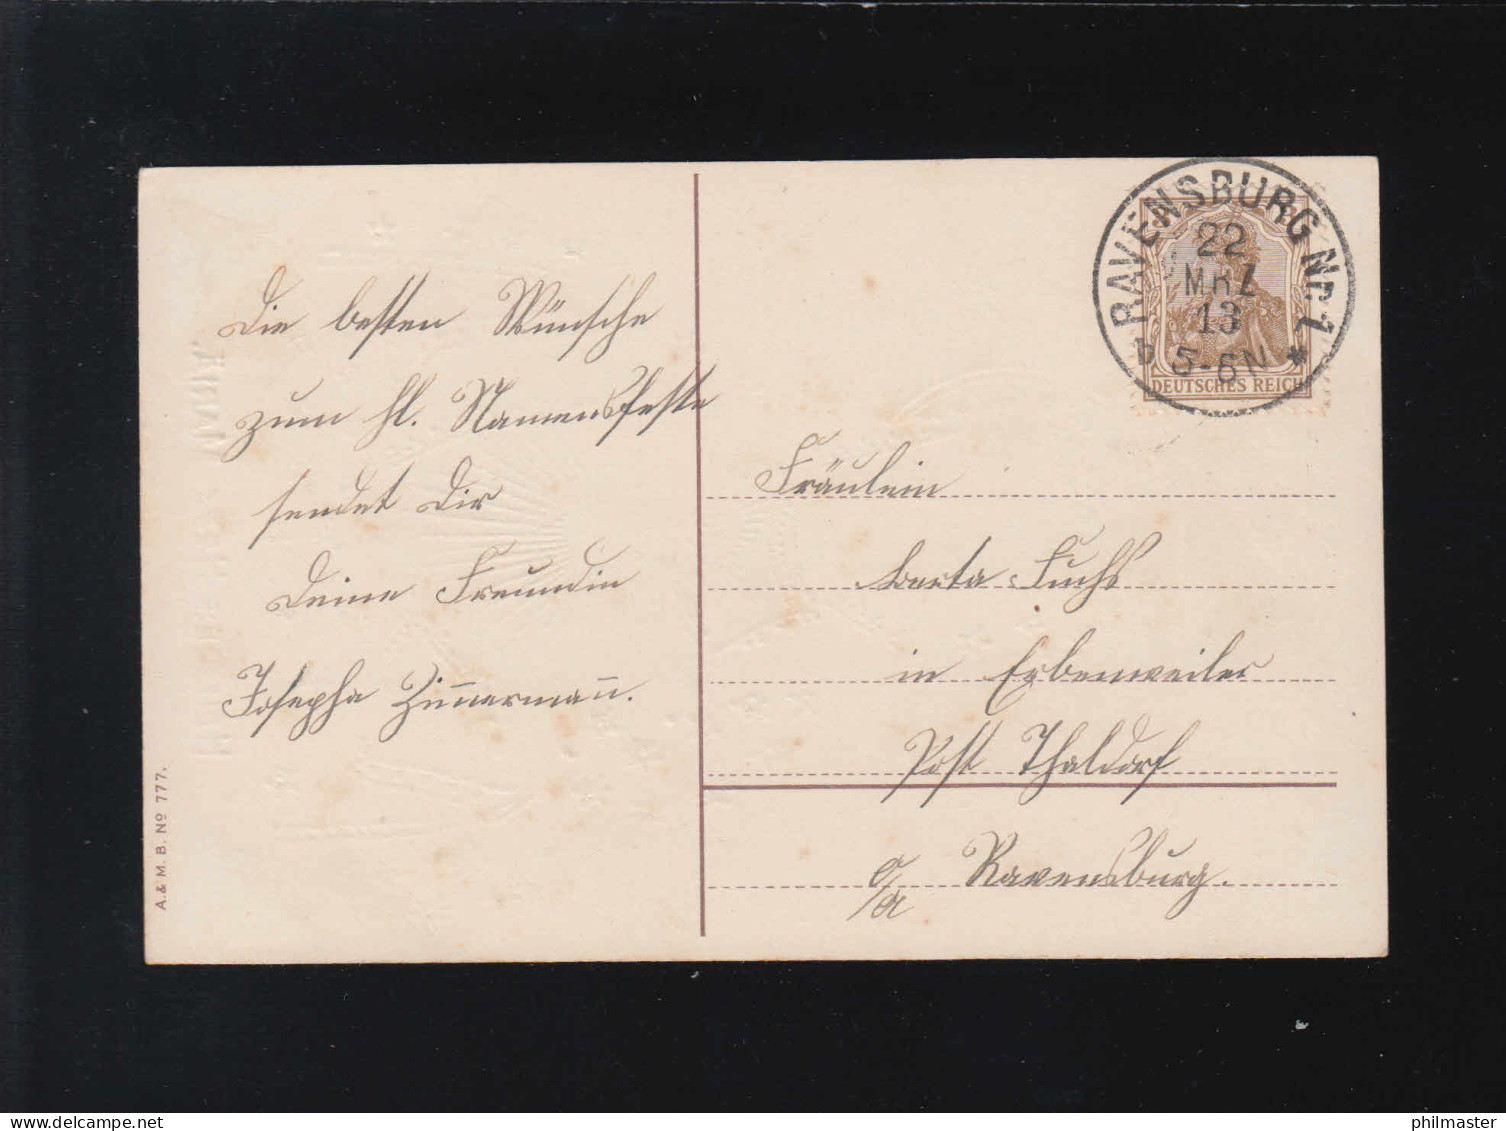 Die besten Wünsche
zum hl. Namensfeste
sendet Dir
Deine Freundin
Josepha Zim̅erman̅.
A. & M. B. No 777.
RAVENSBURG Nr. 1
22
MRZ
13
b 5-6N *
DEUTSCHES REICH
Fräulein
Berta Fuchs
in Erbenweiler
Post Thaldorf
O/A Ravensburg.
philmaster